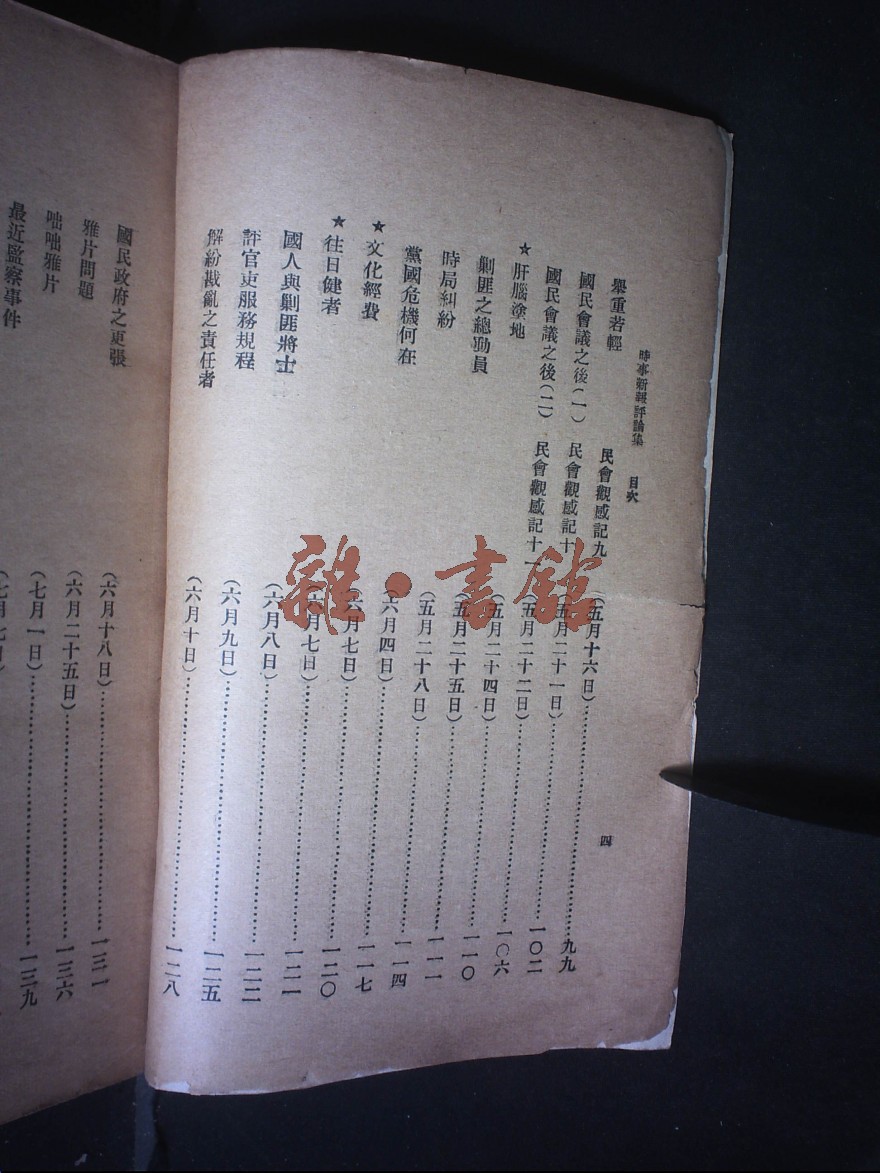 時事新報評論集 目次 四
舉重若輕 民會觀感記九 (五月十六日)……九九
國民會議之後(一) 民會觀感記十 (五月二十一日)……一〇二
國民會議之後(二) 民會觀感記十一 (五月二十二日)……一〇六
★肝腦塗地 (五月二十四日)……一一〇
剿匪之總動員 (五月二十五日)……一一一
時局糾紛 (五月二十八日)……一一四
黨國危機何在 (六月四日)……一一七
★文化經費 (六月七日)……一二〇
★往日健者 (六月七日)……一二一
國人與剿匪將士 (六月八日)……一二二
評官吏服務規程 (六月九日)……一二五
解紛戡亂之責任者 (六月十日)……一二八
國民政府之更張 (六月十八日)……一三一
雅片問題 (六月二十五日)……一三六
咄咄雅片 (七月一日)……一三九
最近監察事件
雜·書館